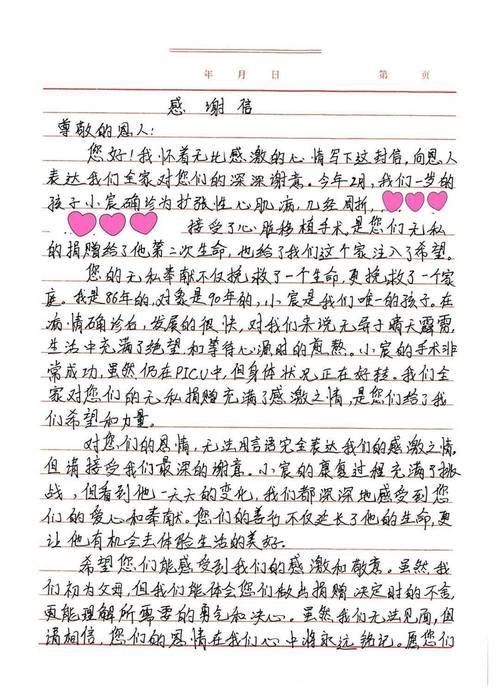 年 月 日 第 页
感谢信
尊敬的恩人:
您好!我怀着无比感激的心情写下这封信,向恩人
表达我们全家对您们的深深谢意。今年2月,我们一岁的
孩子小宸确诊为扩张性心肌病,几经周折,
接受了心脏移植手术,是您们无私
的捐赠给了他第二次生命,也给了我们这个家注入了希望。
您的无私奉献不仅挽救了一个生命,更挽救了一个家
庭。我是86年的,对象是90年的,小宸是我们唯一的孩子,在
病情确诊后,发展的很快,对我们来说无异于晴天霹雳,
生活中充满了绝望和等待心源时的煎熬。小宸的手术非
常成功,虽然仍在PICU中,但身体状况正在好转。我们全
家对您们的无私捐赠充满了感激之情,是您们给了我
们希望和力量。
对您们的恩情,无法用言语完全表达我们的感激之情,
但请接受我们最深的谢意。小宸的康复过程充满了挑
战,但看到他一天天的变化,我们都深深地感受到您
们的爱心和奉献。您们的善行不仅延长了他的生命,更
让他有机会去体验生活的美好。
希望您们能感受到我们的感激和敬意。虽然我
们初为父母,但我们能体会您们做出捐赠决定时的不舍,
更能理解所需要的勇气和决心。虽然我们无法见面,但
请相信,您们的恩情在我们心中将永远铭记。愿您们